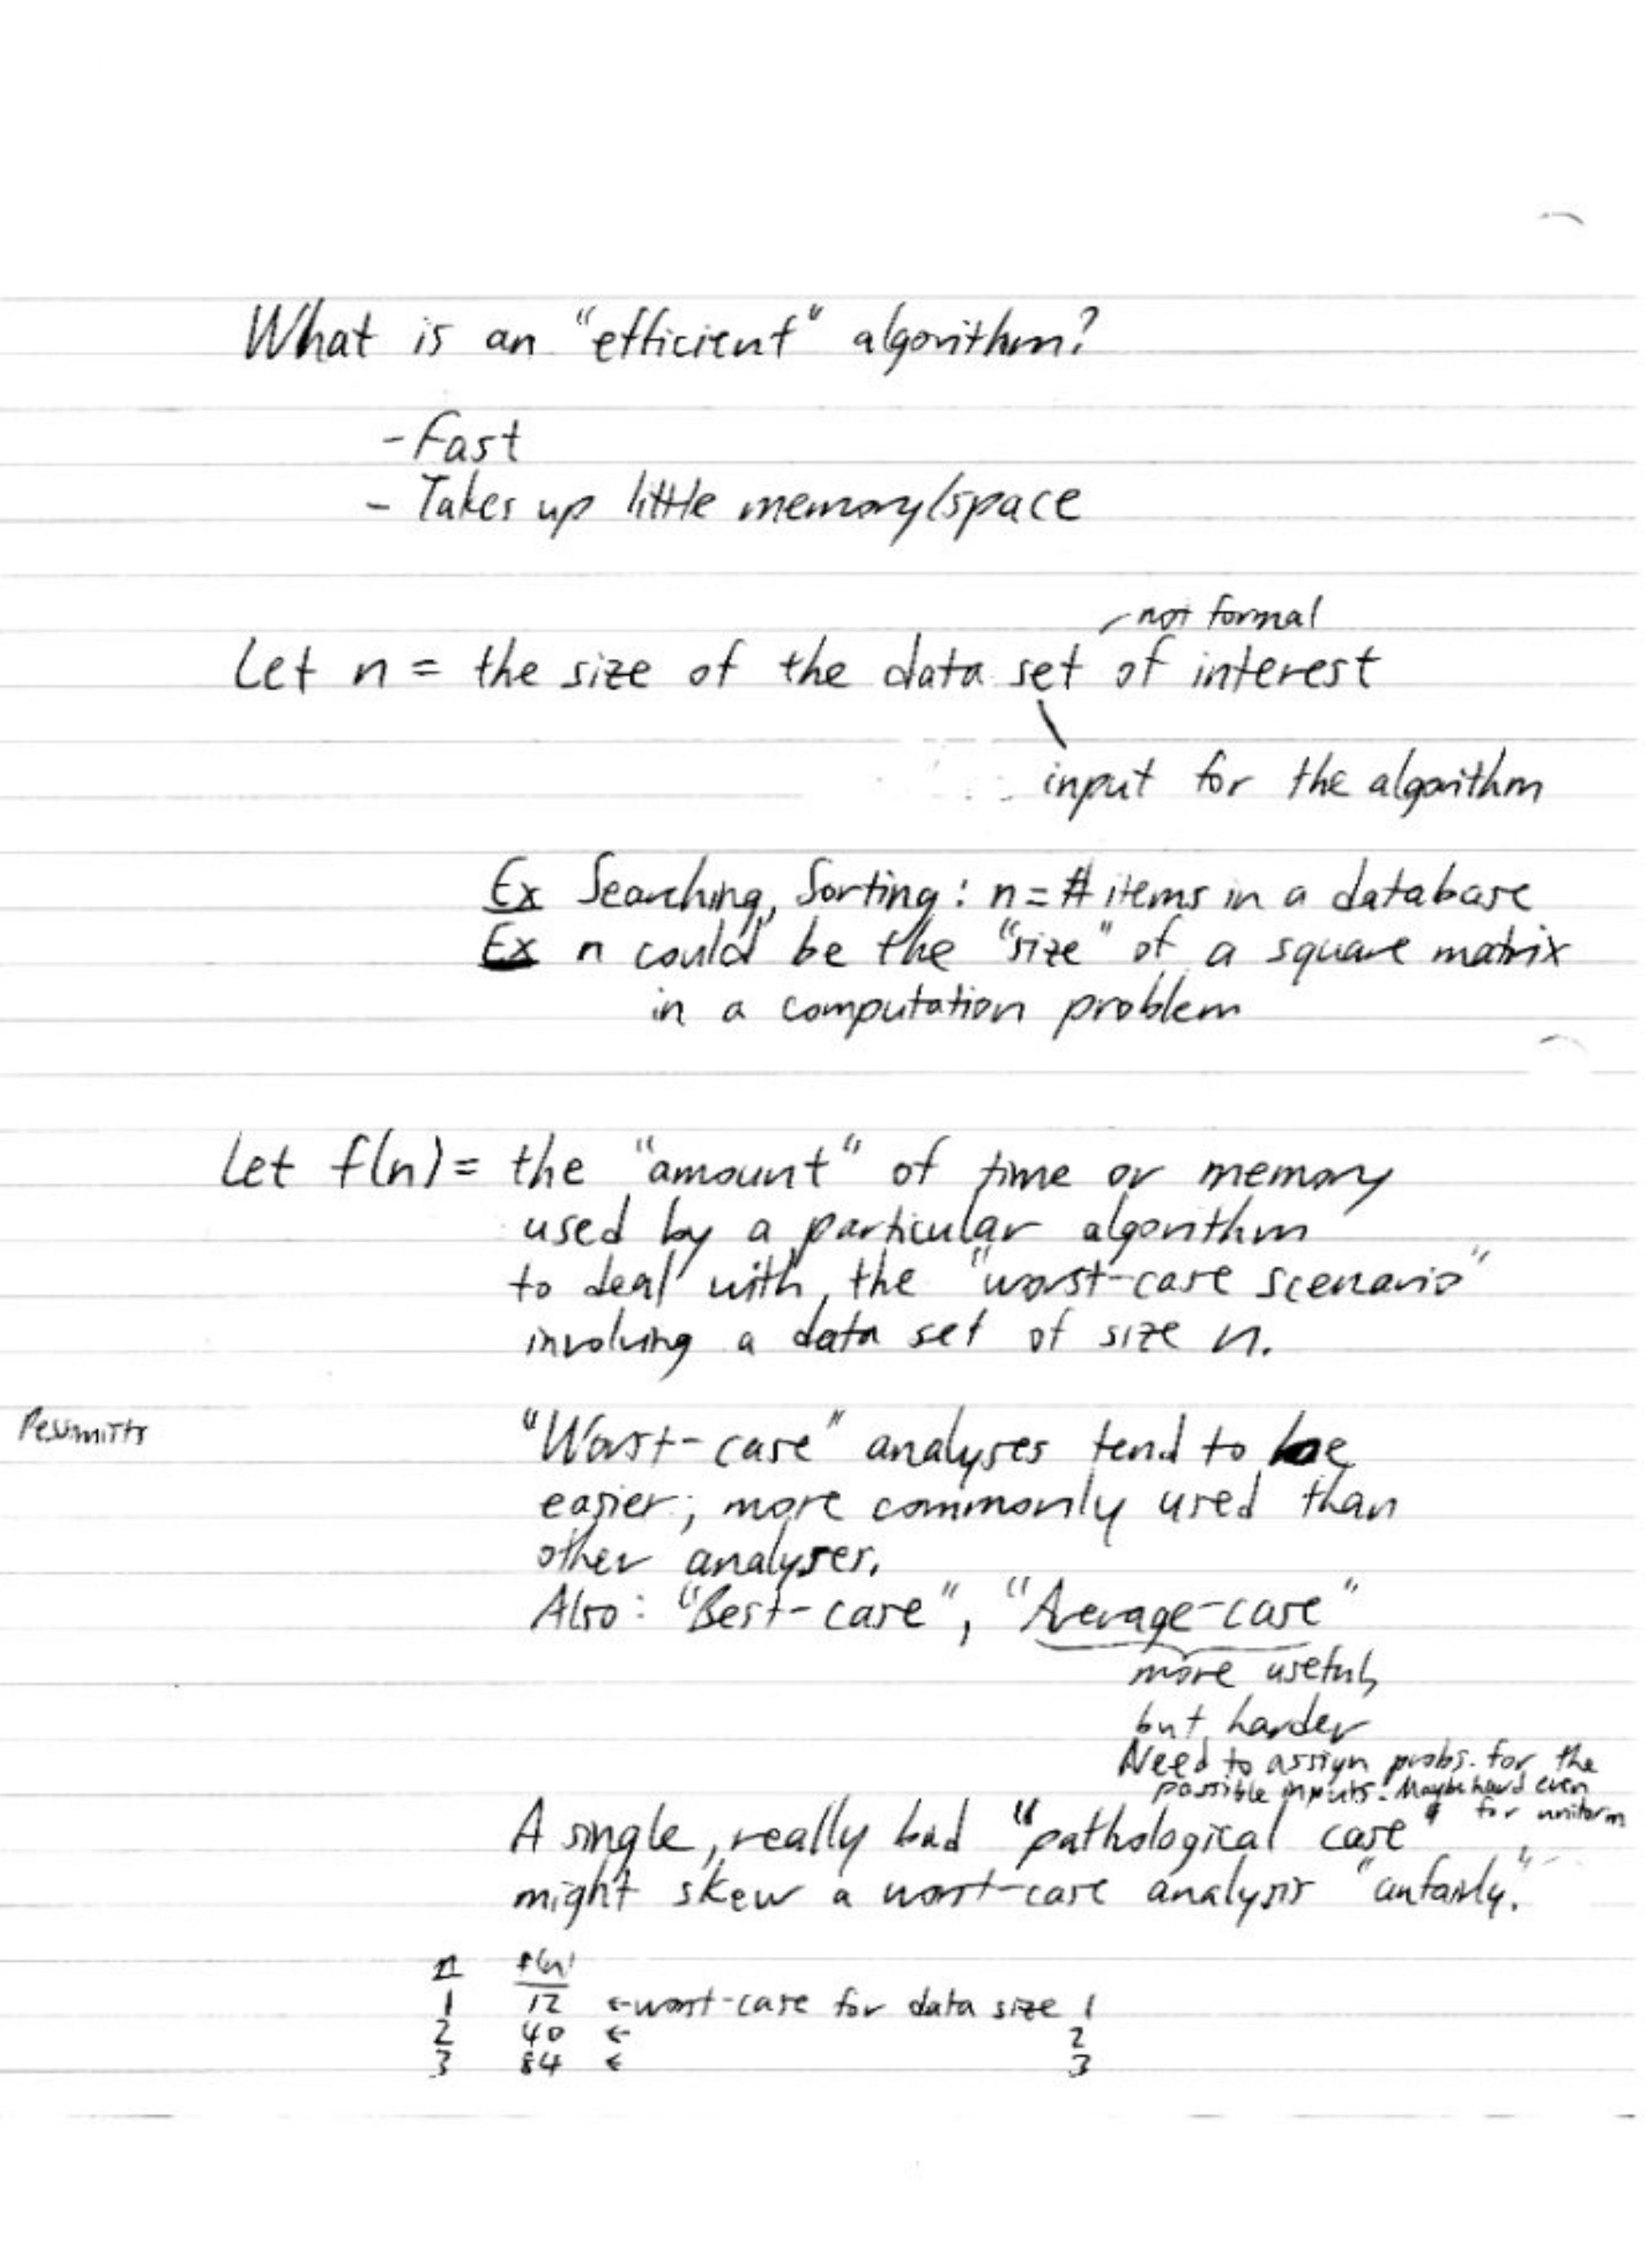 What is an "efficient" algorithm?
- Fast
- Takes up little memory/space
not formal
Let n = the size of the data set of interest
input for the algorithm
Ex Searching, Sorting: n = # items in a database
Ex n could be the "size" of a square matrix
in a computation problem
Let f(n) = the "amount" of time or memory
used by a particular algorithm
to deal with the "worst-case scenario"
involving a data set of size n.
Pessimists
"Worst-case" analyses tend to be
easier; more commonly used than
other analyses.
Also: "Best-case", "Average-case"
more useful,
but harder
Need to assign probs. for the
possible inputs. Maybe hard even
for uniform
A single, really bad "pathological case"
might skew a worst-case analysis "unfairly."
n f(n)
1 12 ←worst-case for data size 1
2 40 ← 2
3 84 ← 3